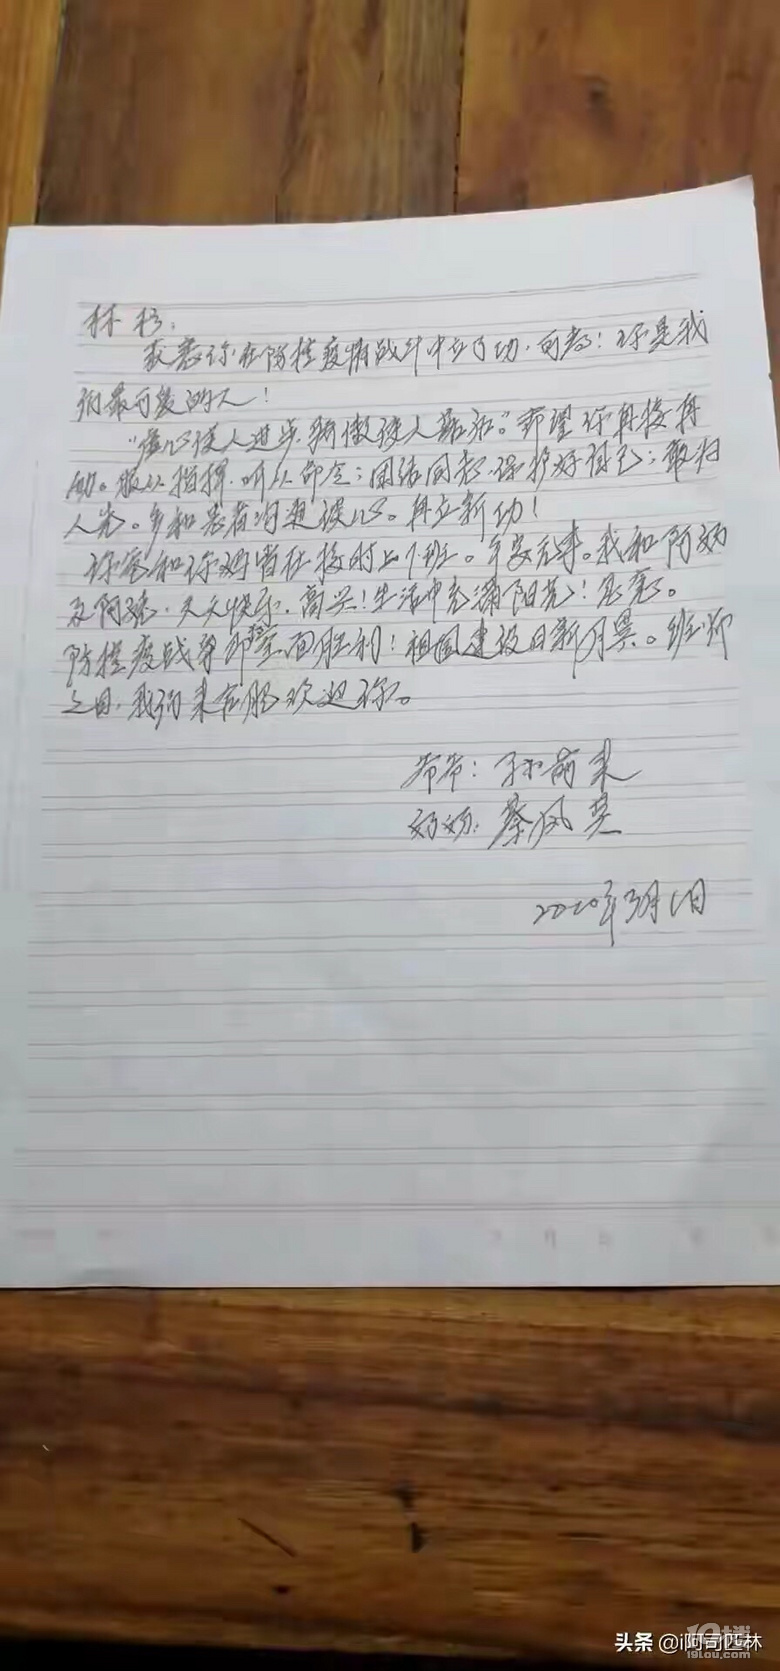 林杉：
获悉你在防控疫情战斗中立了功，向你！你是我
们最可爱的人！
“虚心使人进步，骄傲使人落后。”希望你再接再
励。服从指挥，听从命令；团结同志，保护好自己；敢为
人先。多和患者沟通谈心。再立新功！
你爸和你妈皆在按时上下班。平安无事。我和阿奶
及阿，天天快乐，高兴！生活中充满阳光！
防控疫战争即面胜利！祖国建设日新月异。班师
之日，我们来合肥欢迎你。
爷爷：孙前来
奶奶：蔡凤英
2020年3月1日
头条 @i阿司匹林
19楼
19lou.com